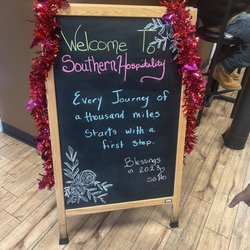 Welcome To
Southern Hospitality
Every Journey of
a thousand miles
Starts with a
first step.
Blessings
in 2023